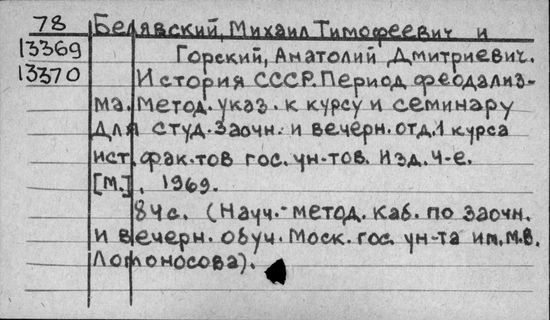 78
13369
13370
Белявский, Михаил Тимофеевич и
Горский, Анатолий Дмитриевич.
История СССР. Период феодализ-
ма. Метод. указ. к курсу и семинару
для студ. заочн. и вечерн. отд. 1 курса
ист. фак-тов гос. ун-тов. Изд. 4-е.
[М.], 1969.
84с. (Науч.-метод. каб. по заочн.
и вечерн. обуч. Моск. гос. ун-та им. М.В.
Ломоносова).